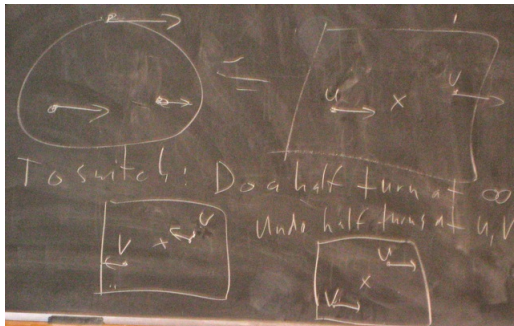 u x v
To switch: Do a half turn at ∞
Undo half turns at u, v
v x u
u
v x